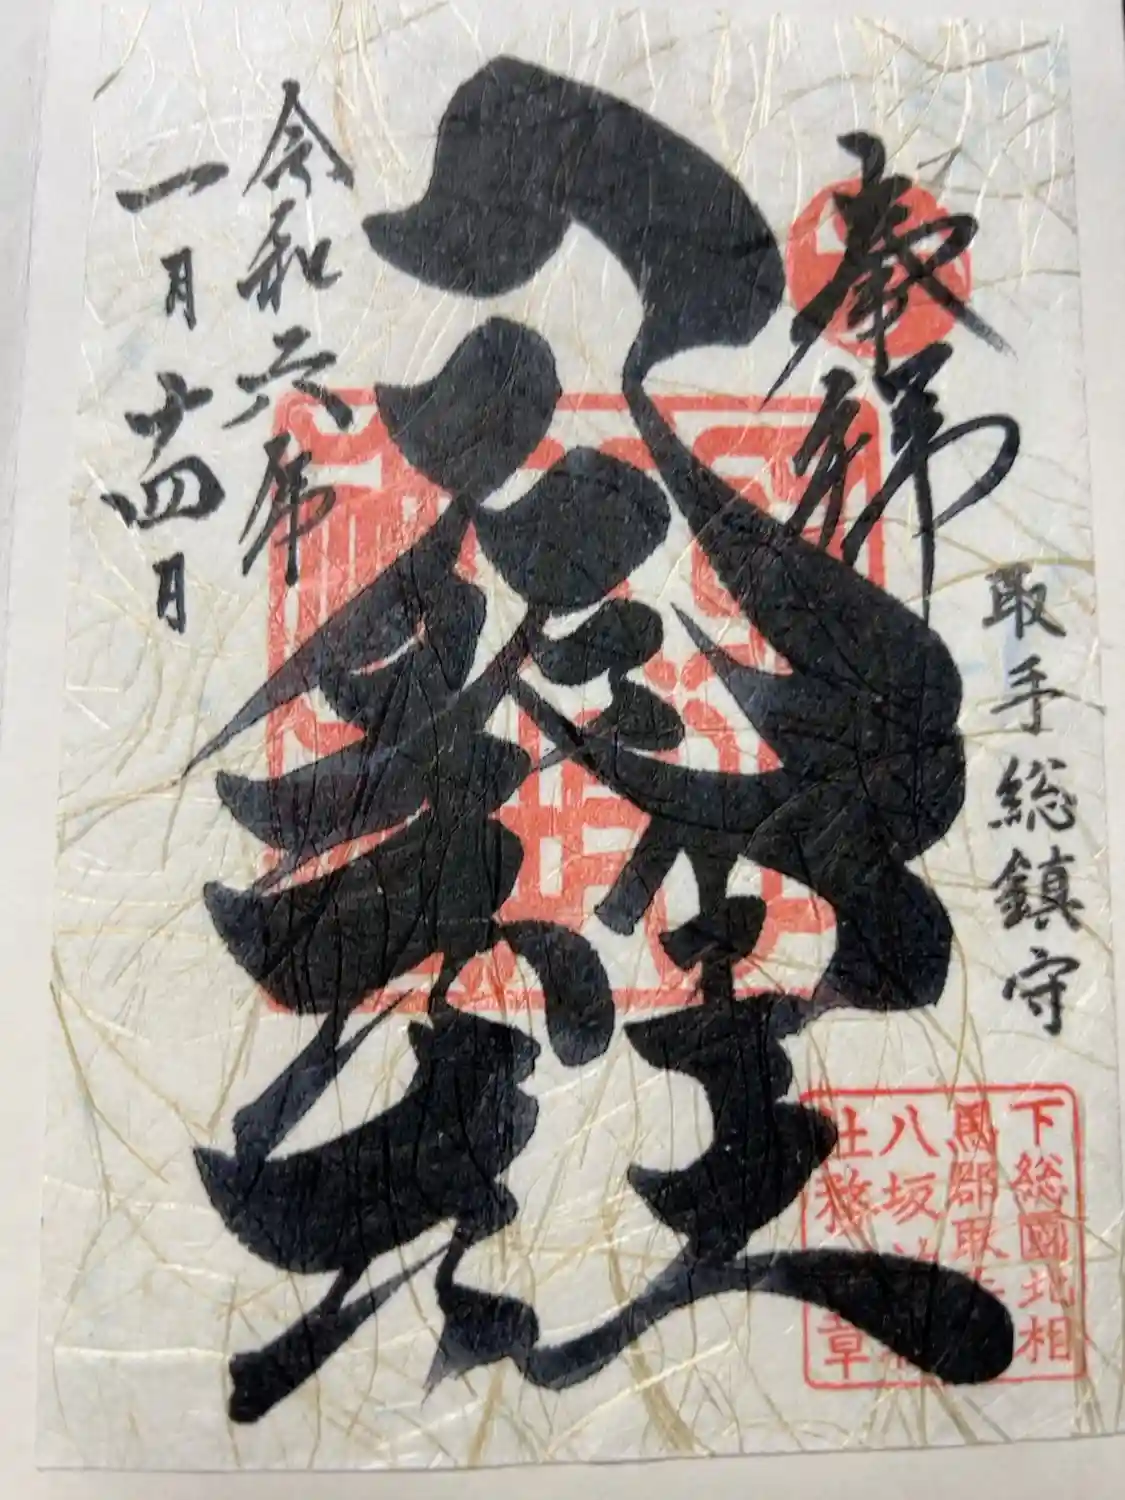 奉拝
取手総鎮守
八坂神社
令和六年
一月廿四日
下総國北相
馬郡取手
八坂神社
社務
章